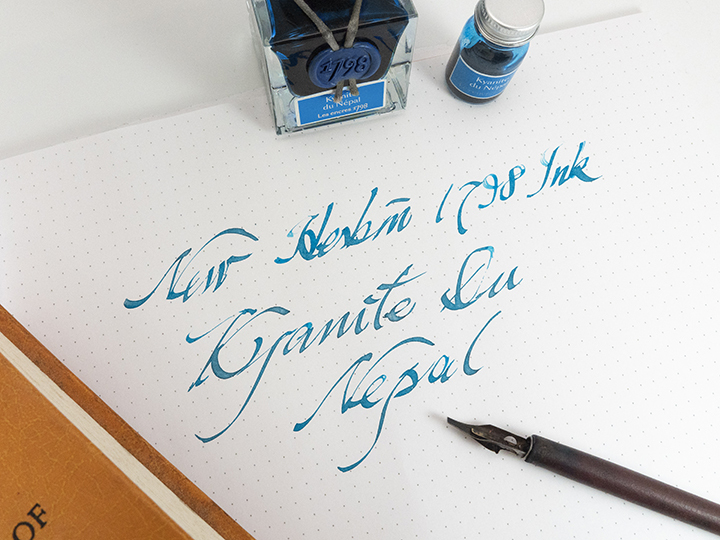 1798
Kyanite
du Népal
Les encres 1798
Kyanite
du Népal
New Herbin 1798 Ink
Kyanite Du
Nepal
OF